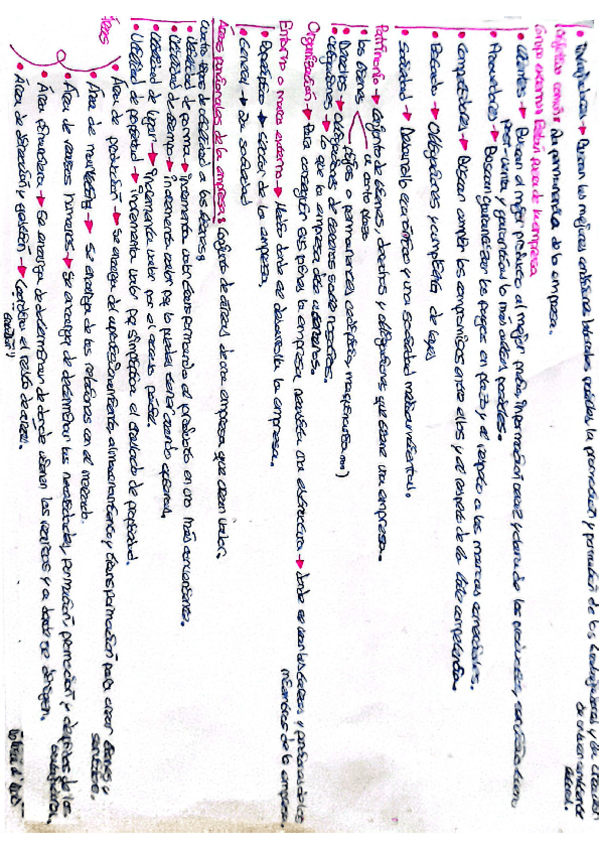 • Trabajadores → Buscan las mejores condiciones laborales posibles, la promoción y formación de los trabajadores y la creación de un buen ambiente laboral.
Objetivo común: La permanencia de la empresa.
Grupo externo: Están fuera de la empresa
• Clientes → Buscan el mejor producto al mejor precio, información veraz y clara de los productos, servicio
post-venta y garantías lo más altas posibles.
• Proveedores → Buscan garantizar los pagos en plazo y el respeto a las marcas comerciales.
• Competidores → Buscan cumplir los compromisos entre ellos y el respeto de la libre competencia.
• Estado → Obligaciones y cumplimiento de leyes
• Sociedad → Desarrollo económico y una sociedad medioambiental.
Patrimonio → Conjunto de bienes, derechos y obligaciones que tiene una empresa.
• Los bienes fijos o permanentes (edificios, maquinarias...)
a corto plazo
• Derechos → Obligaciones de terceros sobre nosotros.
• Obligaciones → Lo que la empresa debe
Organización → Para conseguir sus fines la empresa necesita una estructura → donde se ven las tareas y funciones de los miembros de la empresa.
Entorno o marco externo → Medio donde se desarrolla la empresa.
• Específico → Sector de la empresa.
• General → La sociedad
Áreas funcionales de la empresa: Conjunto de áreas de una empresa que crean valor.
Cuatro tipos de utilidad a los bienes:
• Utilidad de forma → incrementa valor transformando el producto en uno más conveniente.
• Utilidad de tiempo → incrementa valor se lo puedes tener cuando quieras.
• Utilidad de lugar → incrementa valor por el acceso fácil.
• Utilidad de propiedad → incrementa valor se simplifica el traslado de propiedad.
Áreas
• Área de producción → Se encarga del aprovisionamiento, almacenamiento y transformación para crear bienes y servicios.
• Área de marketing → se encarga de las relaciones con el mercado.
• Área de recursos humanos → se encarga de determinar las necesidades, formación, promoción y despidos de los trabajadores.
• Área financiera → Se encarga de determinar de dónde vienen los recursos y a donde se dirigen.
• Área de dirección y gestión → Coordina el resto de áreas.